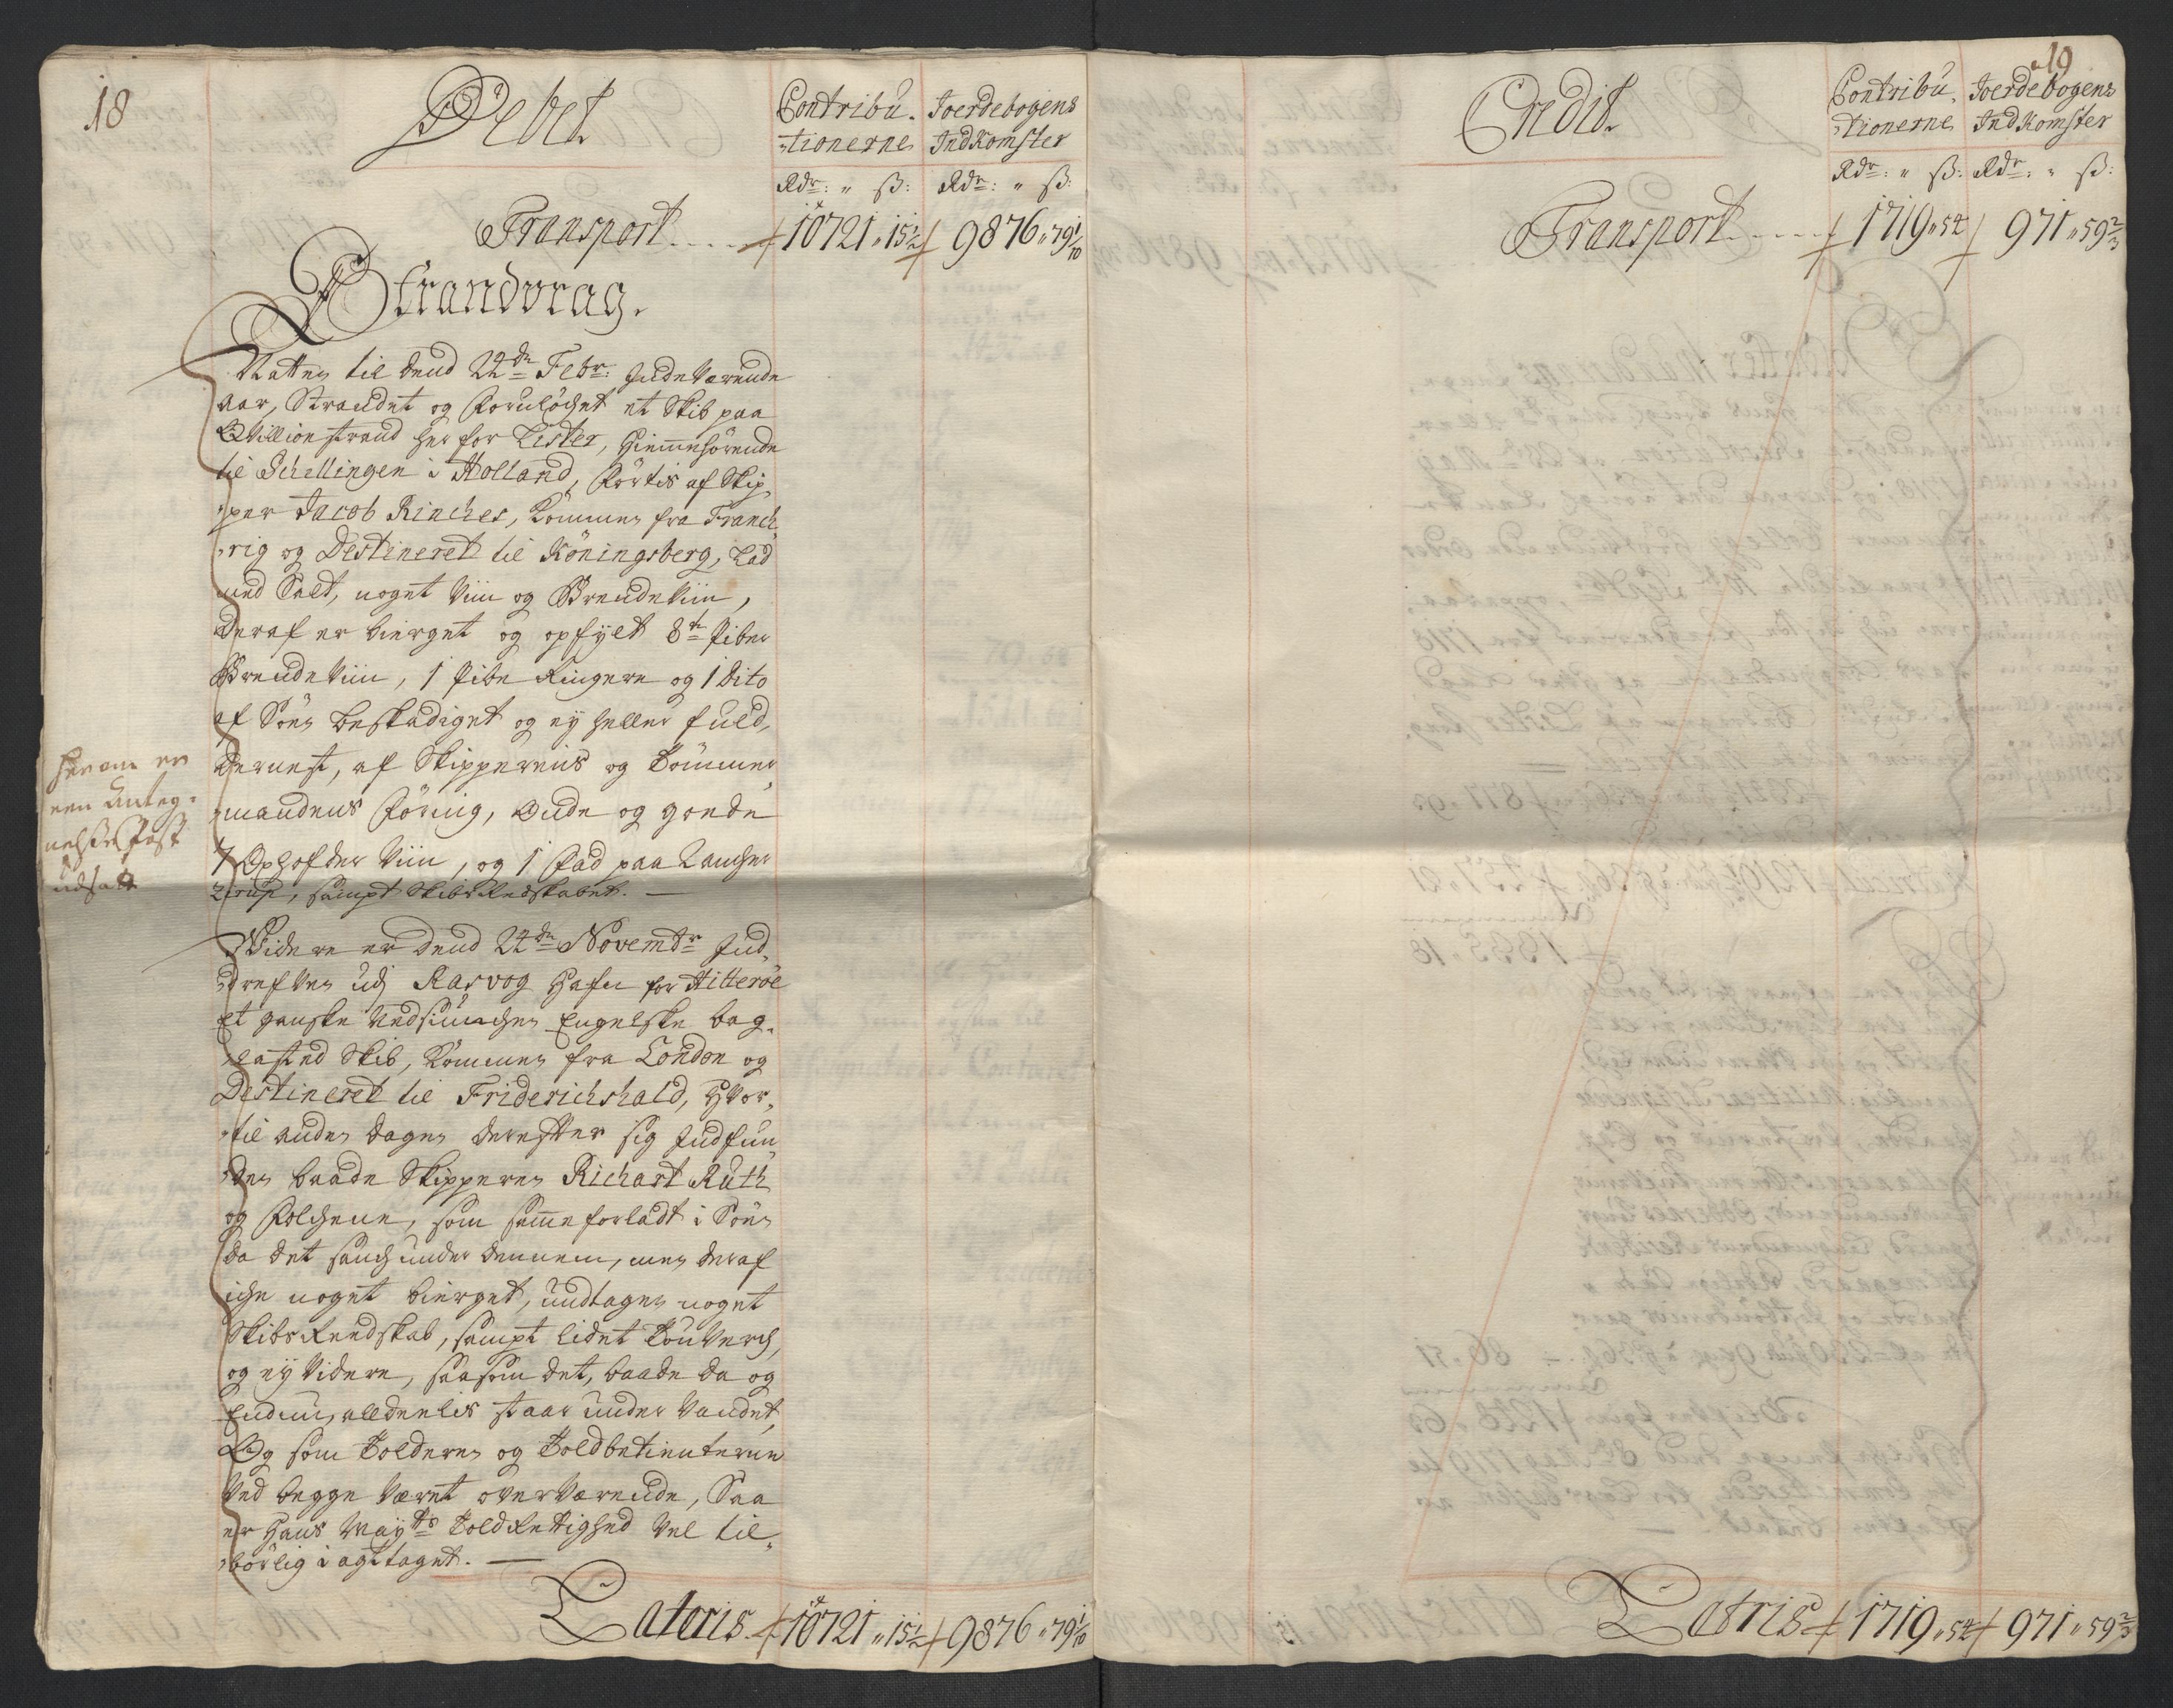 18
Debet
Contribu-
tionerne
Joerdebogens
Indkomster
Rdr: " ß: Rdr: " ß:
Transport.... 10721 " 15½ 9876 " 79 1/10
Strandvrag.
Natten til dend 22de Febr: Indeværende
aar, Strandet og Forulöchet et Skib paa
Qvillionstrand her for Lister, hiemmehörende
til Schellingen i Holland, Förtis af Skip-
per Jacob Rinches, kommen fra Franch-
rig og Destineret til Köningsberg, Lad
med Salt, noget Viin og Brendeviin,
deraf er bierget og opfylt 8te Piber
Brendeviin, 1 Pibe Ringere og 1 dito
af Söen beskadiget og ey heller fuld,
dernest, af Skipperens og Tömmer-
mandens Föring, Onde og goede
7 Oxhofder Viin, og 1 Fad paa 2 ancher
Sirup, sampt Skibs Redskabet. —
herom er
een Anteg-
nelses Post
udsatt
Widere er dend 22de Novembr Ind-
drefven udj Rasvog Hafn for Hitteröe
Et ganske Vedsiunchen Engelske bag-
lasted Skib, kommen fra London og
Destineret til Friderichshald, hvor-
til anden dagen derefter sig Indfun-
den baade Skipperen Richart Ruth
og Folchene, som samme forladt i Söen
da det sanch under dennem, men deraf
iche noget bierget, undtagen noget
Skibs Reedskab, sampt lidet Touverch,
og ey Videre, saasom det, baade da og
Endnu, alldeelis staar under Vandet,
Og som Tolderen og Toldbetienterne
Ved begge Været overværende, Saa
er Hans Mayts Told Rettighed Vel til-
börlig i agttaget. —
Lateris 10721 " 15½ 9876 " 79 1/10
19
Credit.
Contribu-
tionerne
Joerdebogens
Indkomster
Rdr: " ß: Rdr: " ß:
Transport..... 1719 " 54 971 " 59⅔
Latris 1719 " 54 971 " 59⅔